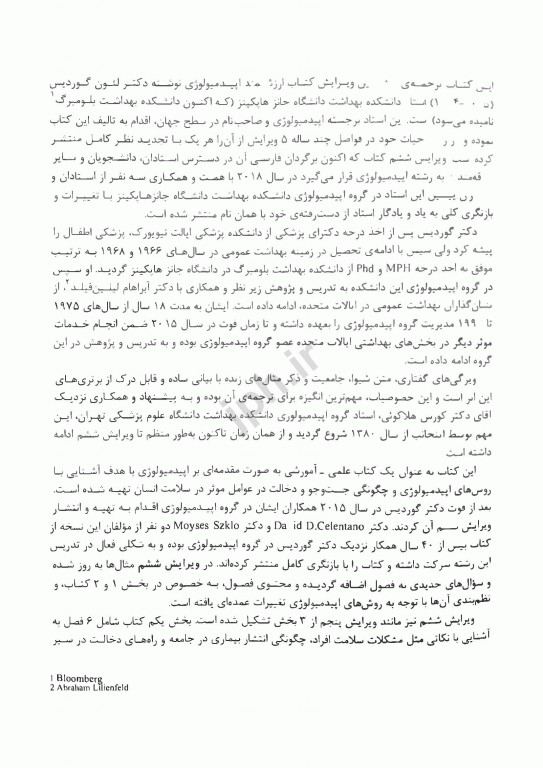 این کتاب ترجمه‌ی ویرایش کتاب اپیدمیولوژی نوشته دکتر لئون گوردیس
دانشکده بهداشت دانشگاه جانز هاپکینز (که اکنون دانشکده بهداشت بلومبرگ1
نامیده می‌شود) است. این استاد برجسته اپیدمیولوژی و صاحب‌نام در سطح جهان، اقدام به تالیف این کتاب
نموده و حیات خود در فواصل چند ساله ۵ ویرایش از آن‌را هر یک با تجدید نظر کامل منتشر
کرده ویرایس ششم کتاب که اکنون برگردان فارسی آن در دسترس استادان، دانشجویان و سایر
به رشته اپیدمیولوژی قرار می‌گیرد در سال ۲۰۱۸ با همت و همکاری سه نفر از استادان و
این استاد در گروه اپیدمیولوژی دانشکده بهداشت دانشگاه جانزهاپکینز با تغییرات و
بازنگری کلی به یاد و یادگار استاد از دست‌رفته‌ی خود با همان نام منتشر شده است.
دکتر گوردیس پس از اخذ درجه دکترای پزشکی از دانشکده پزشکی ایالت نیویورک، پزشکی اطفال را
پیشه کرد ولی سپس با ادامه‌ی تحصیل در زمینه بهداشت عمومی در سال‌های ۱۹۶۶ و ۱۹۶۸ به ترتیب
موفق به اخذ درجه MPH و Phd از دانشکده بهداشت بلومبرگ در دانشگاه جانز هاپکینز گردید. او سپس
در گروه اپیدمیولوژی این دانشکده به تدریس و پژوهش زیر نظر و همکاری با دکتر آبراهام لیلین‌فیلد2، از
بنیان‌گذاران بهداشت عمومی در ایالات متحده، ادامه داده است. ایشان به مدت ۱۸ سال از سال‌های ۱۹۷۵
تا ۱۹۹ مدیریت گروه اپیدمیولوژی را بعهده داشته و تا زمان فوت در سال ۲۰۱۵ ضمن انجام خدمات
موثر دیگر در بخش‌های بهداشتی ایالات متحده عضو گروه اپیدمیولوژی بوده و به تدریس و پژوهش در این
گروه ادامه داده است.
ویرگی‌های گفتاری، متن شیوا، جامعیت و ذکر مثال‌های زنده با بیانی ساده و قابل درک از برتری‌های
این اثر است و این خصوصیات، مهم‌ترین انگیزه برای ترجمه‌ی آن بوده و به پیشنهاد و همکاری نزدیک
آقای دکتر کورس هلاکوئی، استاد گروه اپیدمیولوژی دانشکده بهداشت دانشگاه علوم پزشکی تهران، این
مهم توسط اینجانب از سال ۱۳۸۰ شروع گردید و از همان زمان تاکنون به‌طور منظم تا ویرایش ششم ادامه
داشته است
این کتاب به عنوان یک کتاب علمی - آموزشی به صورت مقدمه‌ای بر اپیدمیولوژی با هدف آشنایی با
روس‌های اپیدمیولوژی و چگونگی جست‌وجو و دخالت در عوامل موثر در سلامت انسان تهیه شده است.
بعد از فوت دکتر گوردیس در سال ۲۰۱۵ همکاران ایشان در گروه اپیدمیولوژی اقدام به تهیه و انتشار
ویرایش آن کردند. دکتر Da id D.Celentano و دکتر Moyses Szklo دو نفر از مؤلفان این نسخه از
کتاب بیس از ۴۰ سال همکار نزدیک دکتر گوردیس در گروه اپیدمیولوژی بوده و به شکلی فعال در تدریس
این رشته سرکت داشته و کتاب را با بازنگری کامل منتشر کرده‌اند. در ویرایش ششم مثال‌ها به روز شده
و سؤال‌های جدیدی به فصول اضافه گردیده و محتوی فصول، به خصوص در بخش ۱ و ۲ کتاب، و
نظم‌بندی آن‌ها با توجه به روش‌های اپیدمیولوژی تغییرات عمده‌ای یافته است.
ویرایش ششم نیز مانند ویرایش پنجم از ۳ بخش تشکیل شده است. بخش یکم کتاب شامل ۶ فصل به
آشنایی با نکاتی مثل مشکلات سلامت افراد، چگونگی انتشار بیماری در جامعه و راه‌های دخالت در سیر
1 Bloomberg
2 Abraham Lilienfeld
iph.ir